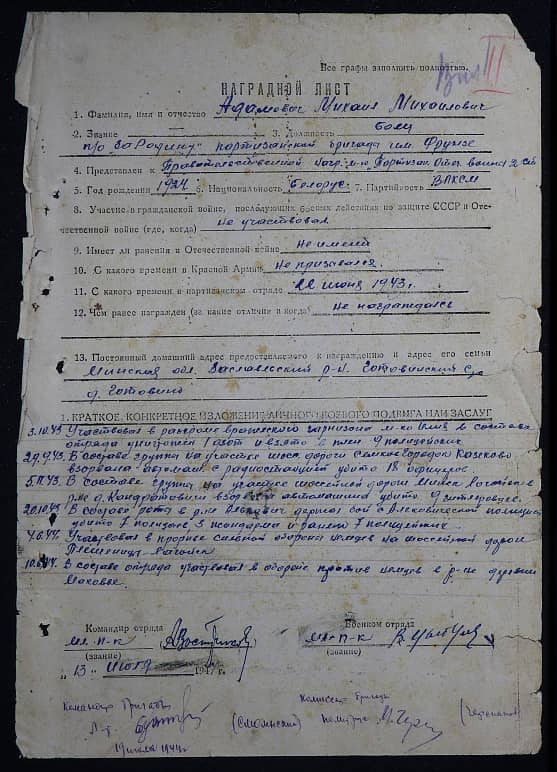 Все графы заполнить полностью.
III
НАГРАДНОЙ ЛИСТ
1. Фамилия, имя и отчество Адамович Михаил Михайлович
2. Звание — 3. Должность боец
п/о "За Родину" партизанской бригады им. Фрунзе
4. Представлен к Правительственной нагр. м-ю Партизан. Отеч. войны 2 ст.
5. Год рождения 1924 6. Национальность белорус. 7. Партийность ВЛКСМ
8. Участие в гражданской войне, последующих боевых действиях по защите СССР и Оте-
чественной войне (где, когда) не участвовал
9. Имеет ли ранения в Отечественной войне Не имеет
10. С какого времени в Красной Армии Не призывался.
11. С какого времени в партизанском отряде июня 1943 г.
12. Чем ранее награжден (за какие отличия и когда) Не награждался
13. Постоянный домашний адрес представляемого к награждению и адрес его семьи
Минская обл. Заславльский р-н. Готовинский с/с
д. Готовино
1. КРАТКОЕ, КОНКРЕТНОЕ ИЗЛОЖЕНИЕ ЛИЧНОГО БОЕВОГО ПОДВИГА ИЛИ ЗАСЛУГ
3.10.43 Участвовал в разгроме вражеского гарнизона м-ко в составе
отряда уничтожен 1 дзот и взято в плен 9 полицейских
29.9.43. В составе группы на участке шос. дороги Козеково
взорвана автомаш. с радиостанцией убито 18
5.11.43. В составе группы на участке шоссейной дороги Минск Логойск
р-не д. Кондратовичи взорвана автомашина убито 9 гитлеровцев.
20.10.43 В составе роты в р-не держал бой с полицией
убито 7 полицаев, 3 жандарма и ранен 7 полицейских.
4.6.44. Участвовал в прорыве сильной обороны немцев на шоссейной дороге
Плещеницы-Логойск
10.6.44. В составе отряда участвовал в обороне против немцев в р-не деревни
Маковье.
Командир отряда Военком отряда
мл. л-к мл. л-к
(звание) (звание)
„13 июля 194 г.
Командир бригады Комиссар бригады
(Смоленский)
19 июля 1944 г.